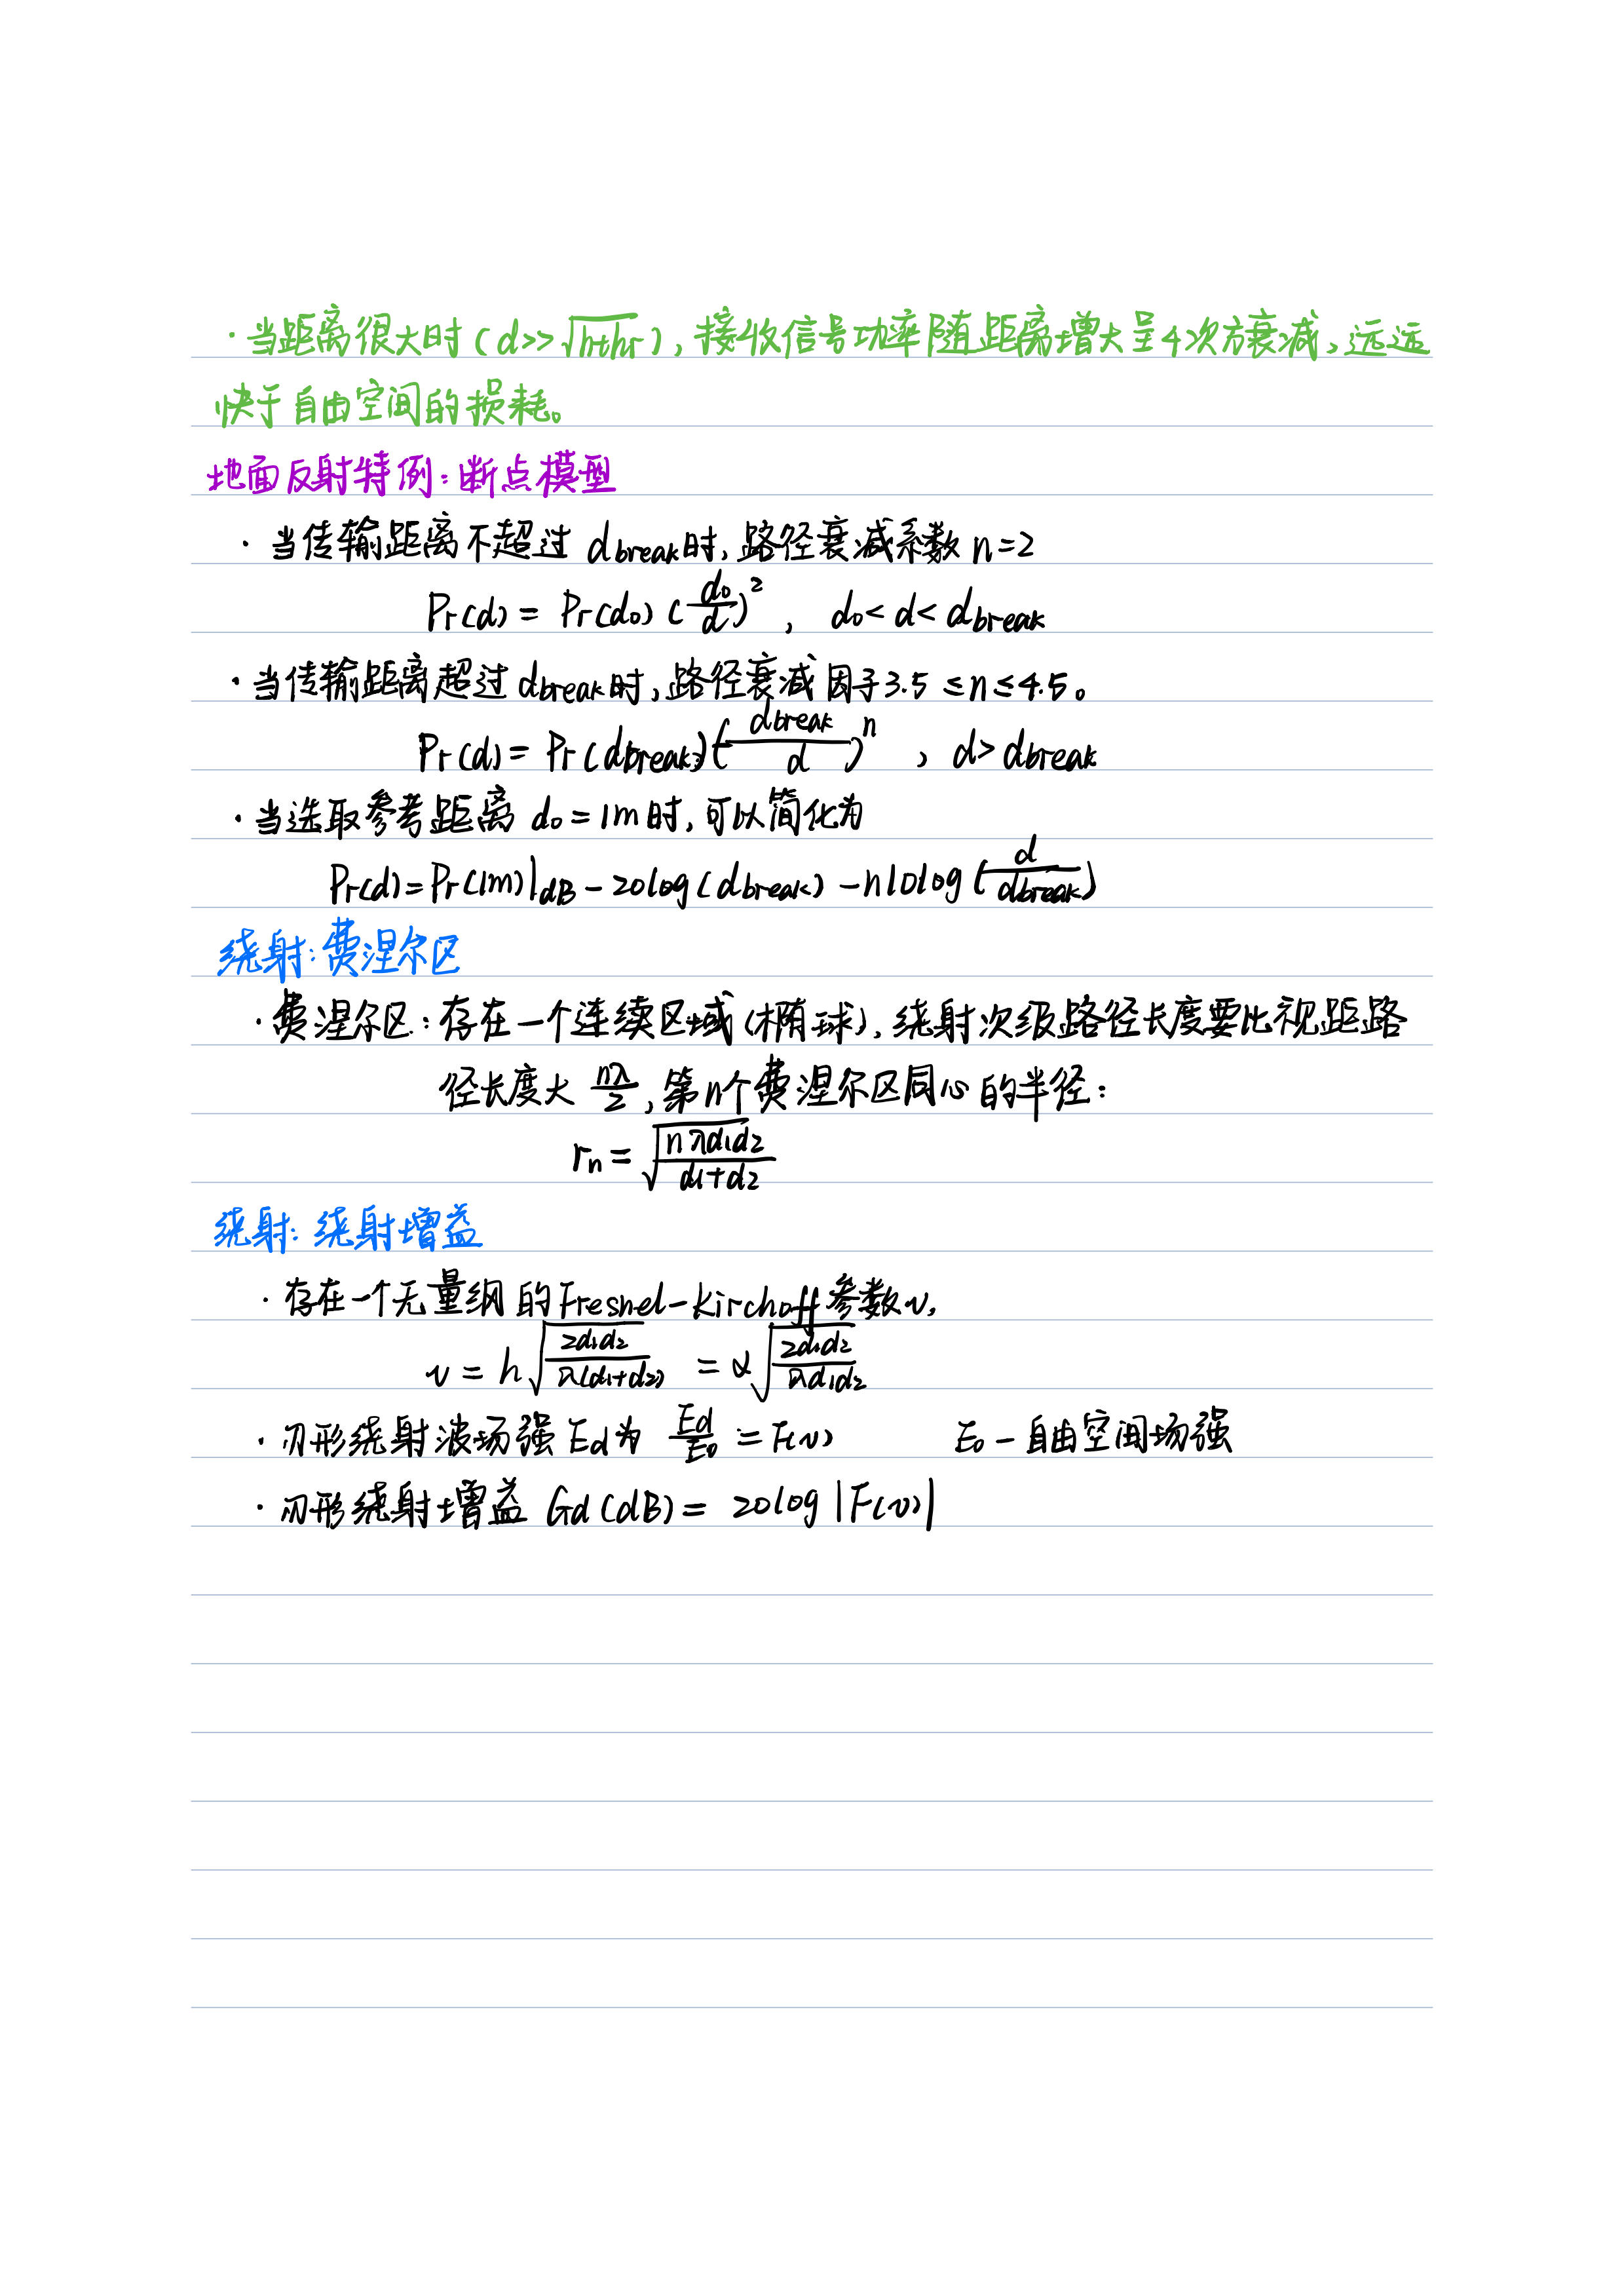 ·当距离很大时(d>>√hthr),接收信号功率随距离增大呈4次方衰减,远远
快于自由空间的损耗。
地面反射特例:断点模型
·当传输距离不超过 dbreak时,路径衰减系数 n=2
Pr(d) = Pr(d₀) (d₀/d)², d₀< d< dbreak
·当传输距离超过dbreak时,路径衰减因子3.5 ≤n≤4.5。
Pr(d) = Pr(dbreak)(dbreak/d)ⁿ, d> dbreak
·当选取参考距离 d₀=1m时,可以简化为
Pr(d)=Pr(1m)|dB - 20log(dbreak) - n10log(d/dbreak)
绕射:费涅尔区
·费涅尔区:存在一个连续区域(椭球),绕射次级路径长度要比视距路
径长度大 nλ/2,第n个费涅尔区同心的半径:
rn = √(nλd₁d₂/(d₁+d₂))
绕射:绕射增益
·存在一个无量纲的Fresnel-Kirchoff参数v,
v = h√(2d₁d₂/(λ(d₁+d₂))) = α√(2d₁d₂/(λd₁d₂))
·刃形绕射波场强Ed为 Ed/E₀ = F(v) E₀-自由空间场强
·刃形绕射增益 Gd(dB) = 20log|F(v)|